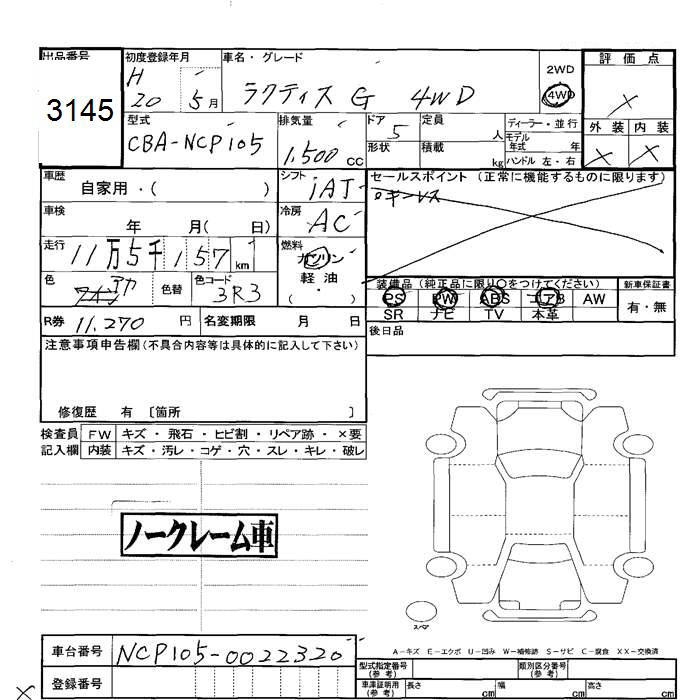 出品番号 初度登録年月 車名・グレード 2WD 評価点
3145 H 20 5月 ラクティス G 4WD 4WD ×
型式 排気量 ドア 定員 ディーラー・並行 外装 内装
CBA-NCP105 1,500 cc 5 人 モデル年式 年 × ×
形状 積載 kg ハンドル 左・右
車歴 シフト セールスポイント (正常に機能するものに限ります)
自家用・( ) iAT キーレス
車検 冷房
年 月( 日) AC
走行 燃料
11万5千157km ガソリン
軽油
( ・ )
色 アカ 色替 色コード 3R3
装備品(純正品に限り○をつけてください) 新車保証書
PS PW ABS エアB AW 有・無
SR ナビ TV 本革
R券 11,270 円 名変期限 月 日 後日品
注意事項申告欄(不具合内容等は具体的に記入して下さい)
修復歴 有 〔箇所 〕
検査員 FW キズ・飛石・ヒビ割・リペア跡・×要
記入欄 内装 キズ・汚レ・コゲ・穴・スレ・キレ・破レ
ノークレーム車
スペア
A－キズ E－エクボ U－凹み W－補修跡 S－サビ C－腐食 XX－交換済
車台番号 NCP105-0022320
登録番号
型式指定番号(参考) 類別区分番号(参考)
車庫証明用(参考) 長さ cm 幅 cm 高さ cm
×